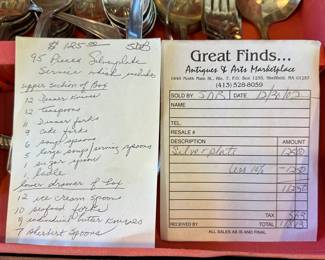 $ 125.00
95 Piece Silverplate
Service which includes
upper section of Box
12 dinner knives
12 teaspoons
dinner forks
9 cake forks
6 soup spoons
5 large soup/serving spoons
1 sugar spoon
1 ladle
lower drawer of box
12 ice cream spoons
10 seafood forks
9 individual butter knives
7 sherbert spoons
Great Finds...
Antiques & Arts Marketplace
(413) 528-8059
SOLD BY DATE
NAME
TEL.
RESALE #
DESCRIPTION AMOUNT
Silverplate 125.00
less 10% - 12.50
112.50
TAX 5.63
RECEIVED BY TOTAL
ALL SALES AS IS AND FINAL